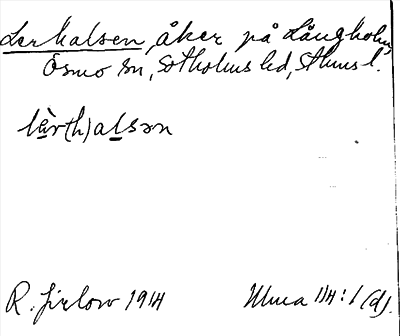 Lerhalsen, åker på Långholm,
Ösmo sn, Sotholms hd, Sthms l.
lèr(h)alsən
R. Jirlow 1914 Ulma 114:1 (d).